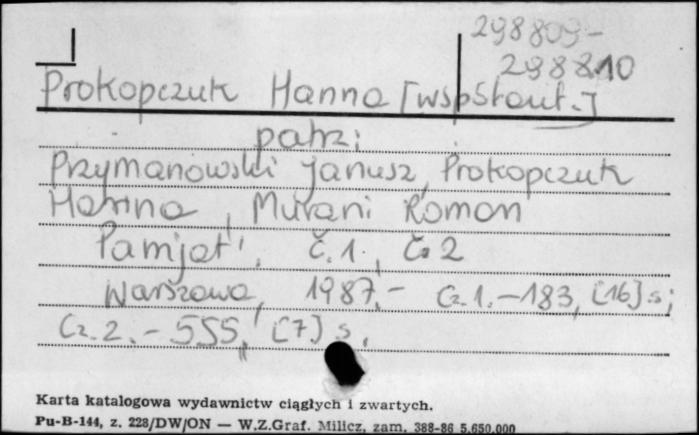 298809-
298810
Prokopczuk Hanna [współaut.]
patrz:
Przymanowski Janusz, Prokopczuk
Hanna, Murani Roman
Pamjat', č.1., č. 2
Warszawa, 1987.- Cz.1.-183, [16] s;
Cz.2.-555, [7] s.
Karta katalogowa wydawnictw ciągłych i zwartych.
Pu-B-144, z. 228/DW/ON — W.Z.Graf. Milicz, zam. 388-86 5.650.000